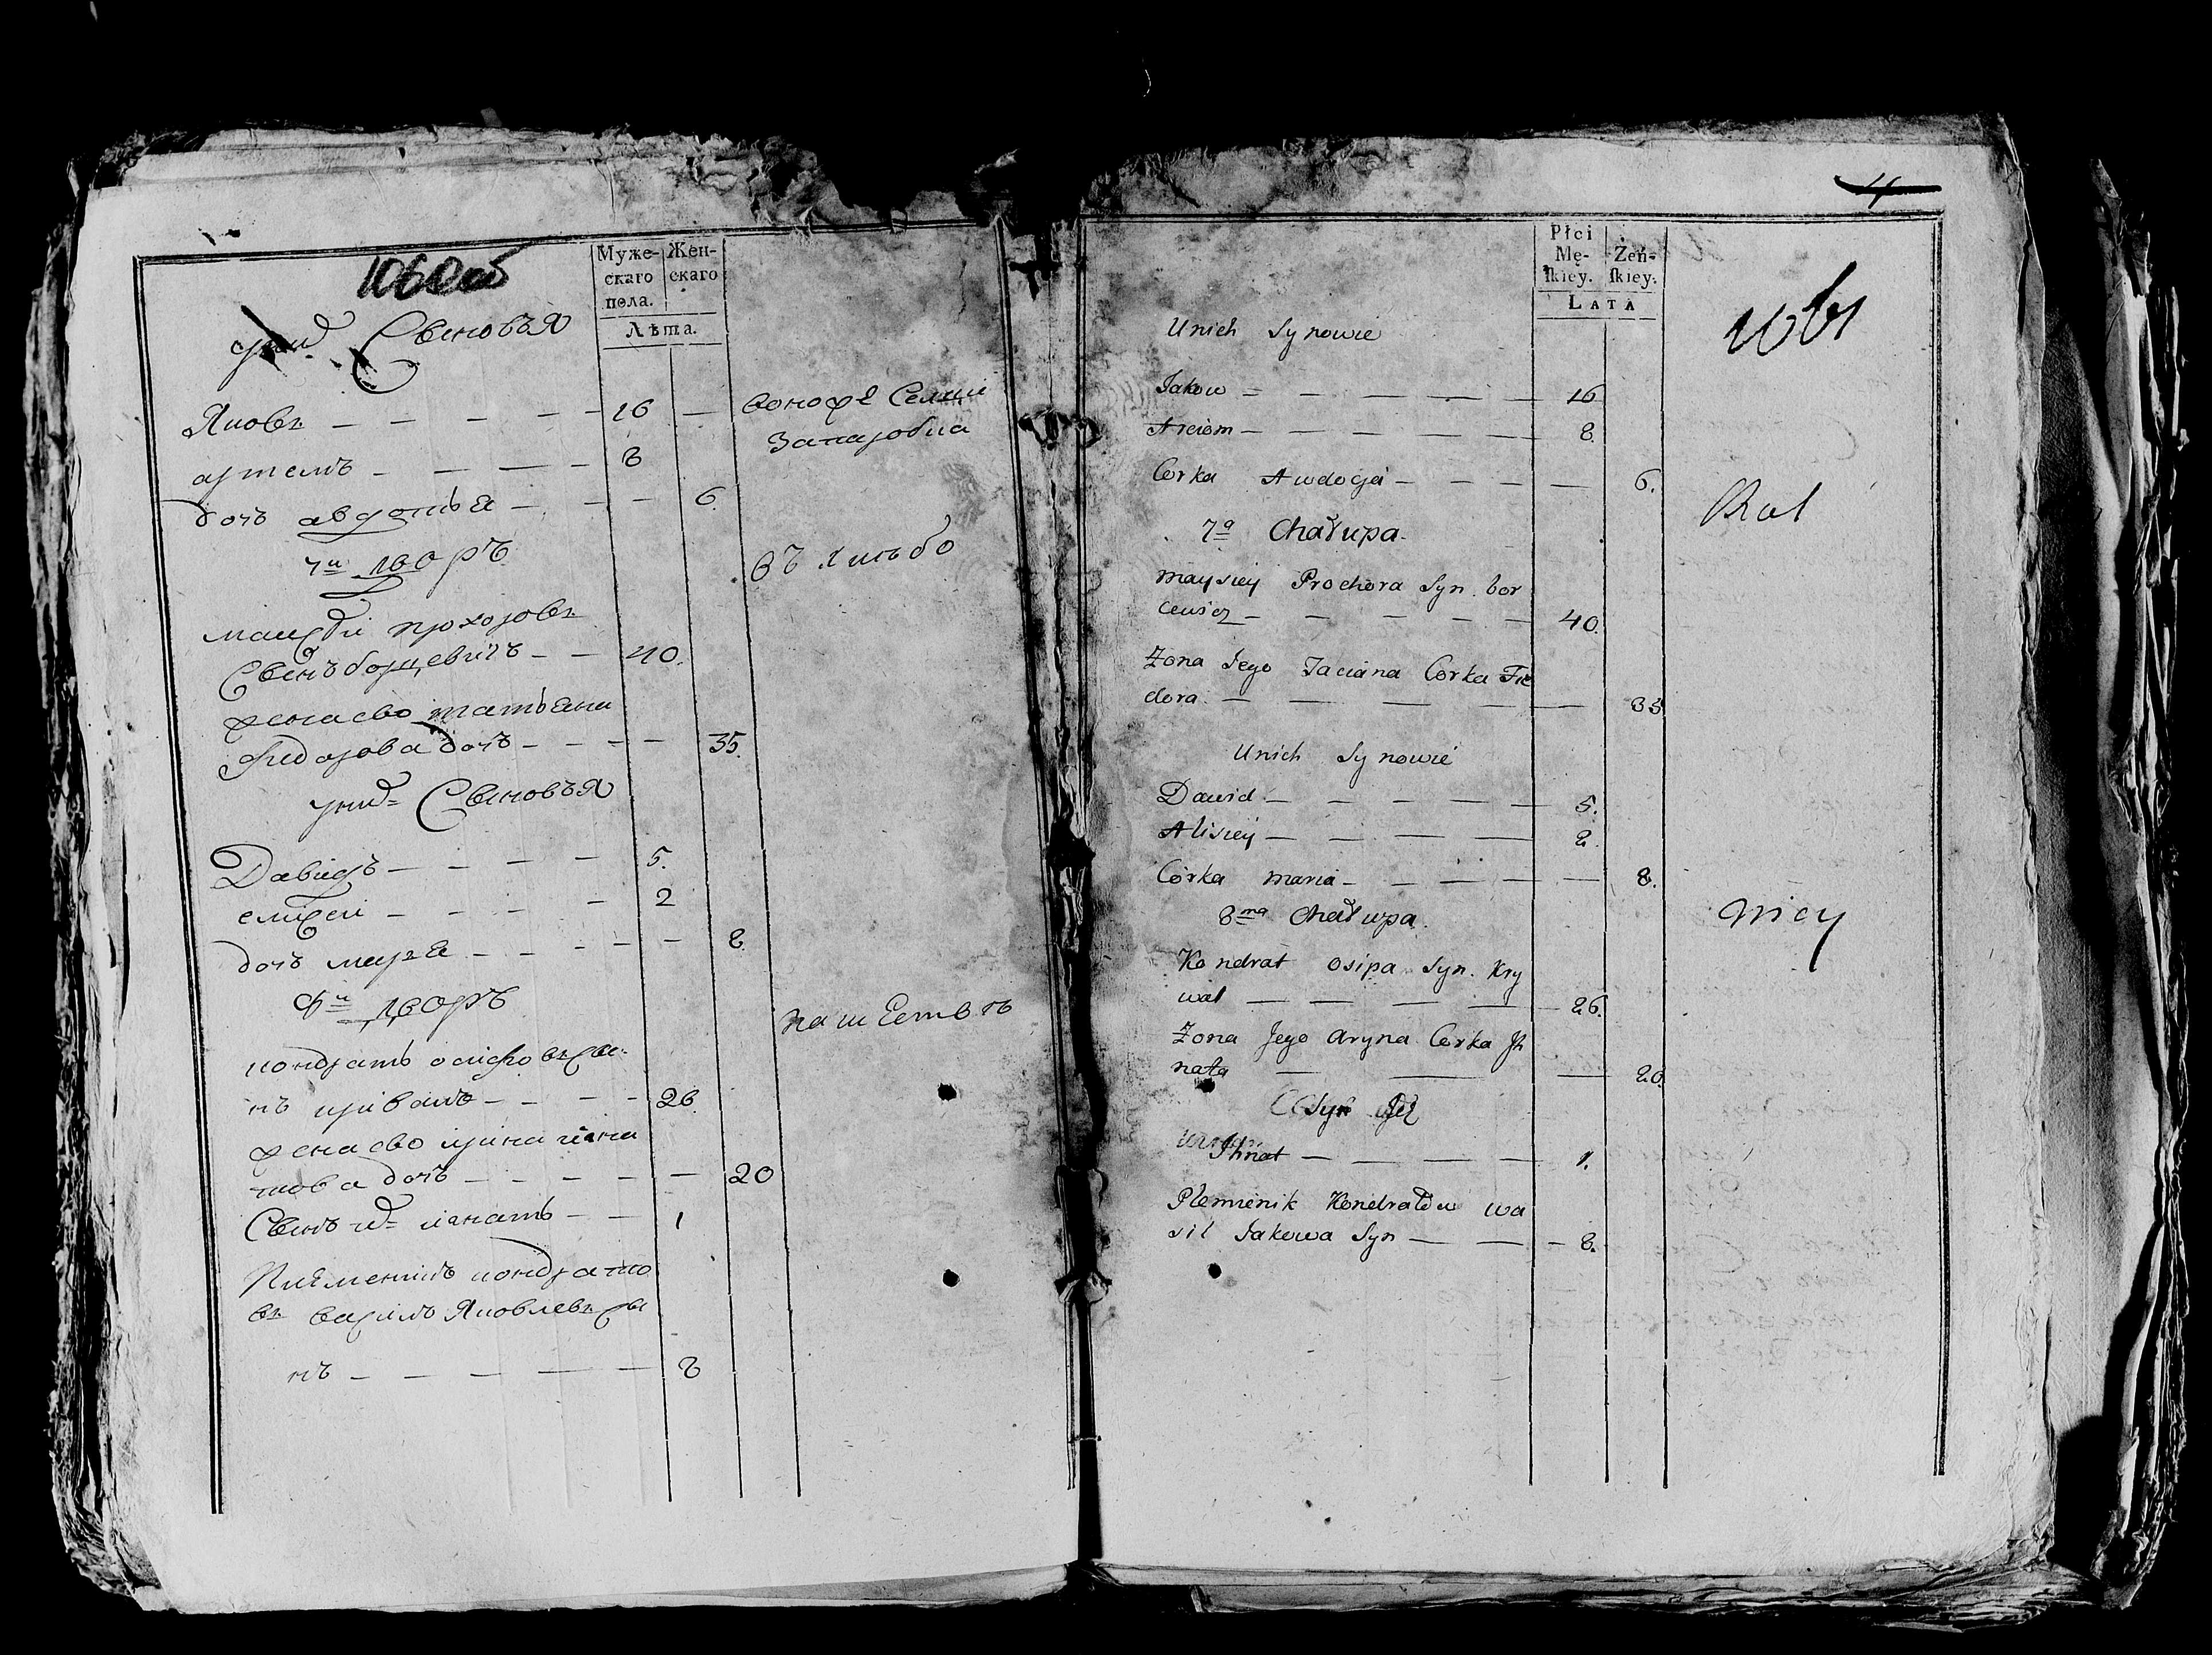 Муже-
скаго
пола.
Жен-
скаго
Лѣта.
у нихъ Сыновья
Яковъ — — — — — 16 —
артемъ — — — — 8
дочь авдотья — — — 6.
7й дворъ
мойсѣй прохоровъ
Сынъ борцевичъ — — 40.
жена ево татьяна
Фиодорова дочь — — — — 35.
у нихъ Сыновья
Давидъ — — — — 5.
елисей — — — — 2
дочь марья — — — — — 8.
8й дворъ
кондратъ осиповъ сы-
нъ кривалъ — — — — 26.
жена ево ирина игна
това дочь — — — — — 20
Сынъ ихъ игнатъ — — 1
Племенникъ кондрато
въ василь Яковлевъ сы
нъ — — — — — 8
Запашобна
Płci
Mę-
ſkiey.
Żeń-
ſkiey.
Lata
4
Unich Synowie
Jakow — — — — — — 16
Arciom — — — — — — 8.
Corka Awdocja — — — — 6.
7a Chałupa.
maysiey Prochora Syn. bor
cewicz — — — — — 40.
Żona Jego Taciana Corka Fie
dora. — — — — — 35
Unich Synowie
Dawid — — — — — 5.
Alisiey — — — — 2.
Córka maria — — — — — 8.
8ma Chałupa.
Kondrat Osipa Syn. Kry
wal — — — — 26.
Żona Jego Aryna Corka Jh
nata — — — 20.
Syn
Jhnat — — — — — 1.
Plemienik Kondratow wa
sil Jakowa Syn — — — 8.